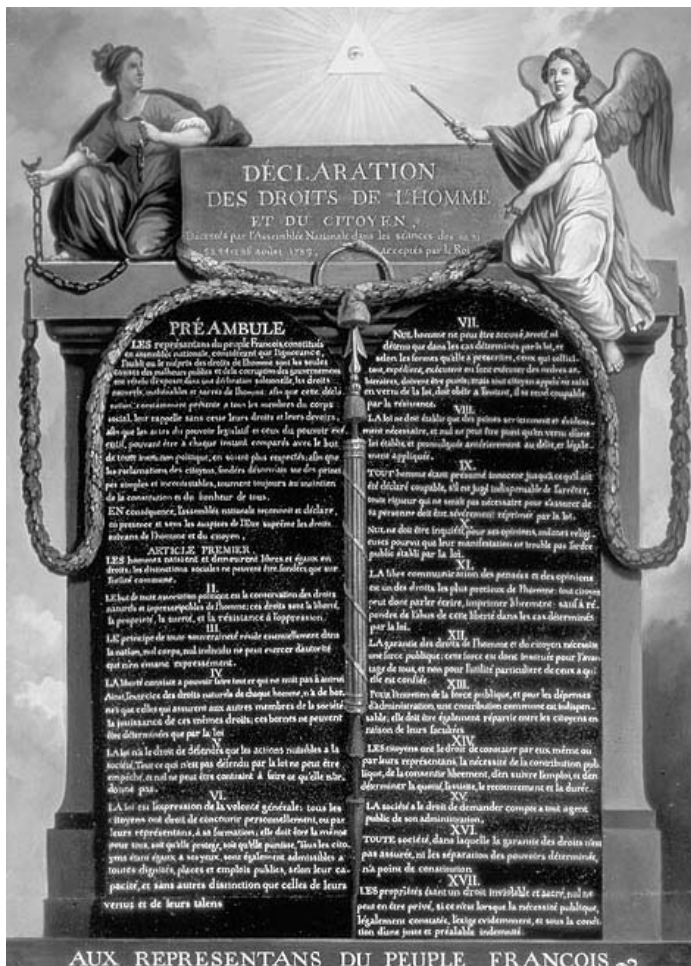 DÉCLARATION
DES DROITS DE L'HOMME
ET DU CITOYEN,
Décretés par l'Assemblée Nationale dans les séances des 20. 21
23. 24 et 26 août 1789, acceptés par le Roi
PRÉAMBULE
LES représentans du peuple François, constitués
en assemblée nationale, considérant que l'ignorance,
l'oubli ou le mépris des droits de l'homme sont les seules
causes des malheurs publics et de la corruption des gouvernemens
ont résolu d'exposer dans une déclaration solemnelle, les droits
naturels, inaliénables et sacrés de l'homme; afin que cette décla
ration, constamment présente a tous les membres du corps
social, leur rappelle sans cesse leurs droits et leurs devoirs;
afin que les actes du pouvoir législatif et ceux du pouvoir exé
cutif, pouvant être à chaque instant comparés avec le but
de toute institution politique, en soient plus respectés; afin que
les réclamations des citoyens, fondées désormais sur des princi
pes simples et incontestables, tournent toujours au maintien
de la constitution et du bonheur de tous.
EN conséquence, l'assemblée nationale reconnoit et déclare,
en présence et sous les auspices de l'Etre suprême les droits
suivans de l'homme et du citoyen,
ARTICLE PREMIER
LES hommes naissent et demeurent libres et égaux en
droits; les distinctions sociales ne peuvent être fondées que sur
l'utilité commune.
II.
LE but de toute association politique est la conservation des droits
naturels et imprescriptibles de l'homme; ces droits sont la liberté,
la propriété, la sureté, et la résistance à l'oppression.
III.
LE principe de toute souveraineté réside essentiellement dans
la nation, nul corps, nul individu ne peut exercer d'autorité
qui n'en émane expressément.
IV
LA liberté consiste a pouvoir faire tout ce qui ne nuit pas à autrui
Ainsi, l'exercice des droits naturels de chaque homme, n'a de bor-
nes que celles qui assurent aux autres membres de la société
la jouissance de ces mêmes droits; ces bornes ne peuvent
être déterminées que par la loi
V.
LA loi n'a le droit de défendre que les actions nuisibles a la
société. Tout ce qui n'est pas défendu par la loi ne peut être
empêché, et nul ne peut être contraint à faire ce qu'elle n'or-
donne pas.
VI.
LA loi est l'expression de la volonté générale; tous les
citoyens ont droit de concourir personnellement, ou par
leurs représentans, à sa formation; elle doit être la même
pour tous, soit qu'elle protege, soit qu'elle punisse, Tous les cito-
yens étant égaux à ses yeux, sont également admissibles a
toutes dignités, places et emplois publics, selon leur ca-
pacité, et sans autres distinction que celles de leurs
vertus et de leurs talens
VII.
NUL homme ne peut être accusé, arreté ni
détenu que dans les cas déterminés par la loi, et
selon les formes qu'elle a prescrites, ceux qui sollici-
tent, expédient, exécutent ou font exécuter des ordres ar-
bitraires, doivent être punis; mais tout citoyen appelé ou saisi
en vertu de la loi, doit obéir à l'instant, il se rend coupable
par la résistance.
VIII.
LA loi ne doit établir que des peines strictement et évidem-
ment nécessaire, et nul ne peut être puni qu'en vertu d'une
loi établie, et promulguée antérieurement au délit, et légale-
ment appliquée.
IX.
TOUT homme étant présumé innocent jusqu'à ce qu'il ait
été déclaré coupable, s'il est jugé indispensable de l'arrêter,
toute rigueur qui ne serait pas nécessaire pour s'assurer de
sa personne doit être sévèrement réprimée par la loi.
X.
NUL ne doit être inquiété pour ses opinions, mêmes religi-
euses pourvu que leur manifestation ne trouble pas l'ordre
public établi par la loi.
XI.
LA libre communication des pensées et des opinions
est un des droits les plus précieux de l'homme: tout citoyen
peut donc parler écrire, imprimer librement: sauf à ré-
pondre de l'abus de cette liberté dans les cas déterminés
par la loi.
XII.
LA garantie des droits de l'homme et du citoyen nécessite
une force publique; cette force est donc instituée pour l'avan-
tage de tous, et non pour l'utilité particuliere de ceux a qui
elle est confiée.
XIII.
POUR l'entretien de la force publique, et pour les dépenses
d'administration, une contribution commune est indispen-
sable; elle doit être également répartie entre les citoyens en
raison de leurs facultées
XIV.
LES citoyens ont le droit de constater par eux même ou
par leurs représentans, la nécessité de la contribution pub-
lique, de la consentir librement, d'en suivre l'emploi, et d'en
déterminer la quotité, l'assiette, le recouvrement et la durée.
XV.
LA société a le droit de demander compte a tout agent
public de son administration.
XVI.
TOUTE société, dans laquelle la garantie des droits n'est
pas assurée, ni les séparation des pouvoirs déterminée,
n'a point de constitution
XVII.
LES propriétés étant un droit inviolable et sacré, nul ne
peut en être privé, si ce n'est lorsque la nécessité publique,
légalement constatée, l'exige evidemment, et sous la condi-
tion d'une juste et préalable indemnité.
AUX REPRESENTANS DU PEUPLE FRANCOIS